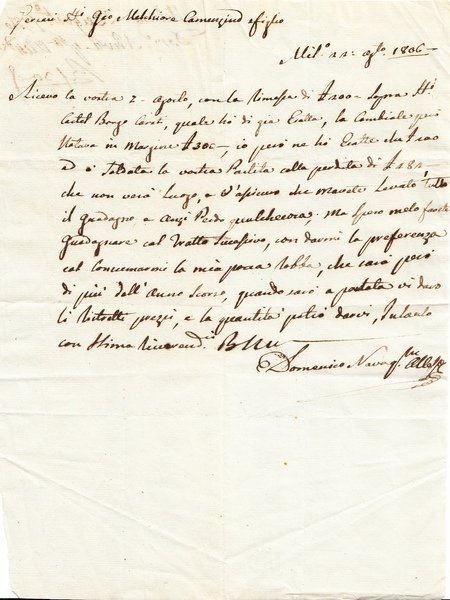 Gersau Sti Gio Melchiore Camenzind e figlio
Milo 11 agto 1806
Ricevo la vostra 2 Agosto, con la Rimessa di £ 200 Sopra
Borgo quale hò di già la Cambiale però
Notava in Margine £ 300 io però ne hò
è Saldata la vostra Partita colla perdita di £ 182
che non verà luogo, e che mavete Levato tutto
il guadagno e anzi Perdo qualchecosa, Ma Spero melo farete
Guadagnare col Tratto Sucesivo, con darmi la preferenza
col Consumarmi la mia poca Robba, che sarà però
di più dell'Anno Scorso, quando sarò a portata vi darò
li Ristretti prezzi, e la quantità potrò darvi, Intanto
con Stima
Domenico Nava qm